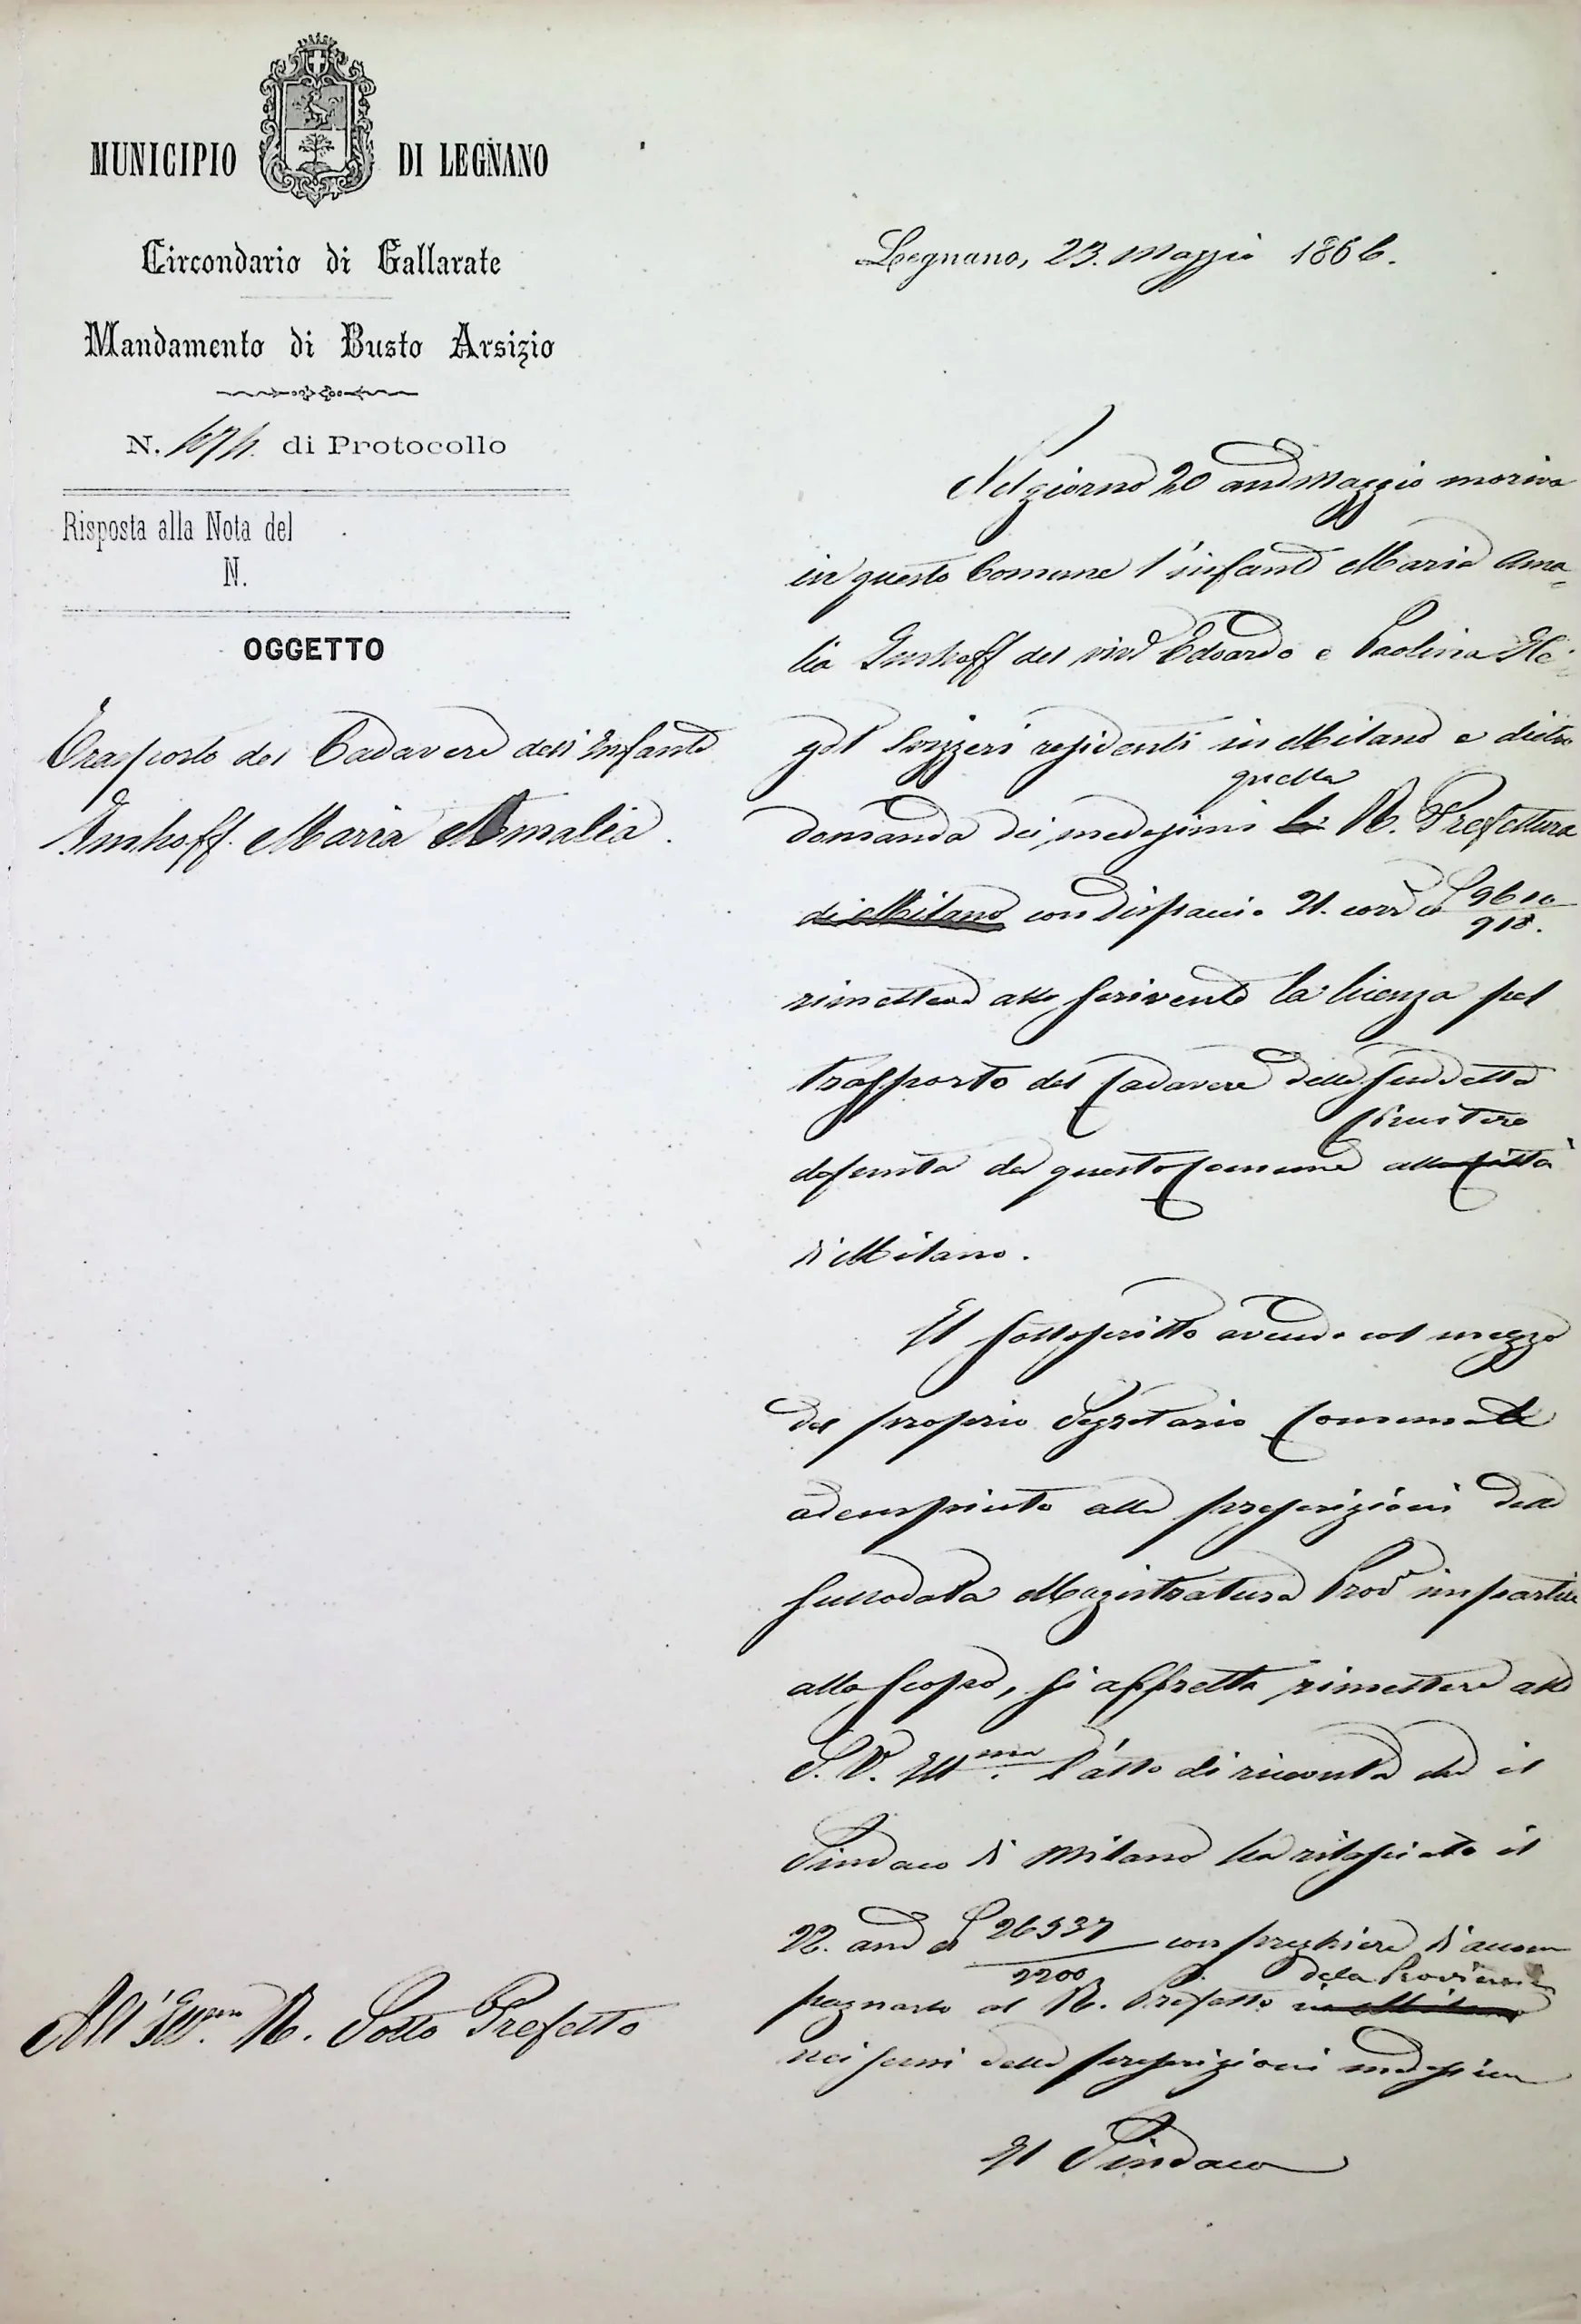 MUNICIPIO DI LEGNANO
Circondario di Gallarate
Mandamento di Busto Arsizio
N. di Protocollo
Risposta alla Nota del
N.
OGGETTO
Trasporto del Cadavere dell'Infante
Imhoff Maria Amalia.
All'Ill.mo R. Sotto Prefetto
Legnano, 23. Maggio 1866.
Nel giorno 20 and Maggio moriva
in questo Comune l'infante Maria Ama=
lia Imhoff del vivo Edoardo e Paolina
Svizzeri residenti in Milano e dietro
quella
domanda dei medesimi la R. Prefettura
di Milano con dispaccio 21. corr.
918.
rimetteva allo scrivente la licenza pel
trasporto del Cadavere della suddetta
Cimitero
defunta da questo Comune alla Città
di Milano.
Il sottoscritto avendo col mezzo
del proprio Segretario Comunale
adempiuto alle prescrizioni della
sullodata Magistratura Prov.e impartite
allo scopo, si affretta rimettere alla
S. V. Ill.ma l'atto di ricevuta che il
Sindaco di Milano ha rilasciato il
22. and 26537
2200
con preghiera di accom
della Provincia
pagnarlo al R. Prefetto in Milano
nei sensi delle prescrizioni medesime
Il Sindaco